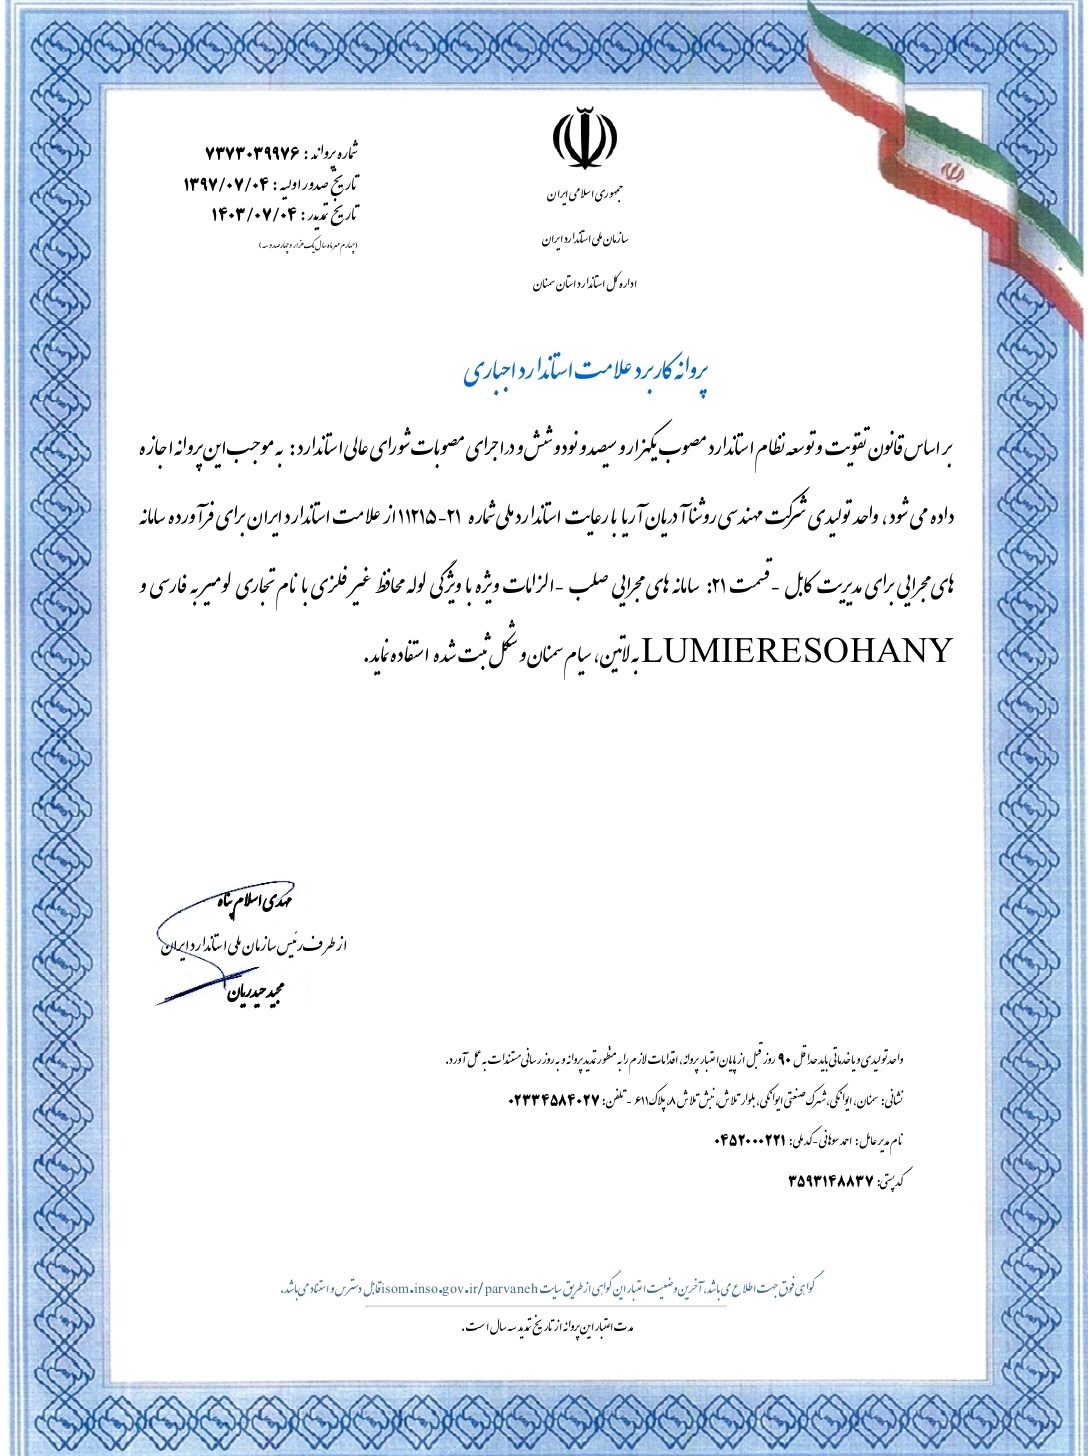 جمهوری اسلامی ایران
سازمان ملی استاندارد ایران
اداره کل استاندارد استان سمنان
شماره پروانه : ۷۳۷۳۰۳۹۹۷۶
تاریخ صدور اولیه : ۱۳۹۷/۰۷/۰۴
تاریخ تمدید : ۱۴۰۳/۰۷/۰۴
(چهارم مهر ماه سال یک هزار و چهارصد و سه)
پروانه کاربرد علامت استاندارد اجباری
بر اساس قانون تقویت و توسعه نظام استاندارد مصوب یکهزار و سیصد و نود و شش و در اجرای مصوبات شورای عالی استاندارد : به موجب این پروانه اجازه
داده می شود ، واحد تولیدی شرکت مهندسی روشنا آذریان آریا با رعایت استاندارد ملی شماره ۲۱-۱۱۲۱۵ از علامت استاندارد ایران برای فرآورده سامانه
های مجرایی برای مدیریت کابل - قسمت ۲۱: سامانه های مجرایی صلب - الزامات ویژه با ویژگی لوله محافظ غیر فلزی با نام تجاری لومیر به فارسی و
LUMIERESOHANY به لاتین، سیام سمنان و شکل ثبت شده استفاده نماید.
مهدی اسلام پناه
از طرف رئیس سازمان ملی استاندارد ایران
مجید حیدریان
واحد تولیدی و یا خدماتی باید حداقل ۹۰ روز قبل از پایان اعتبار پروانه، اقدامات لازم را به منظور تمدید پروانه و به روز رسانی مستندات به عمل آورد.
نشانی: سمنان، ایوانکی، شهرک صنعتی ایوانکی، بلوار تلاش، نبش تلاش ۸، پلاک ۶۱۱ - تلفن: ۰۲۳۳۴۵۸۴۰۲۷
نام مدیر عامل: احمد سوهانی - کد ملی: ۰۴۵۲۰۰۰۲۲۱
کد پستی: ۳۵۹۳۱۴۸۸۳۷
گواهی فوق جهت اطلاع می باشد، آخرین وضعیت اعتبار این گواهی از طریق سایت isom.inso.gov.ir/parvaneh قابل دسترس و استناد می باشد.
مدت اعتبار این پروانه از تاریخ تمدید سه سال است.